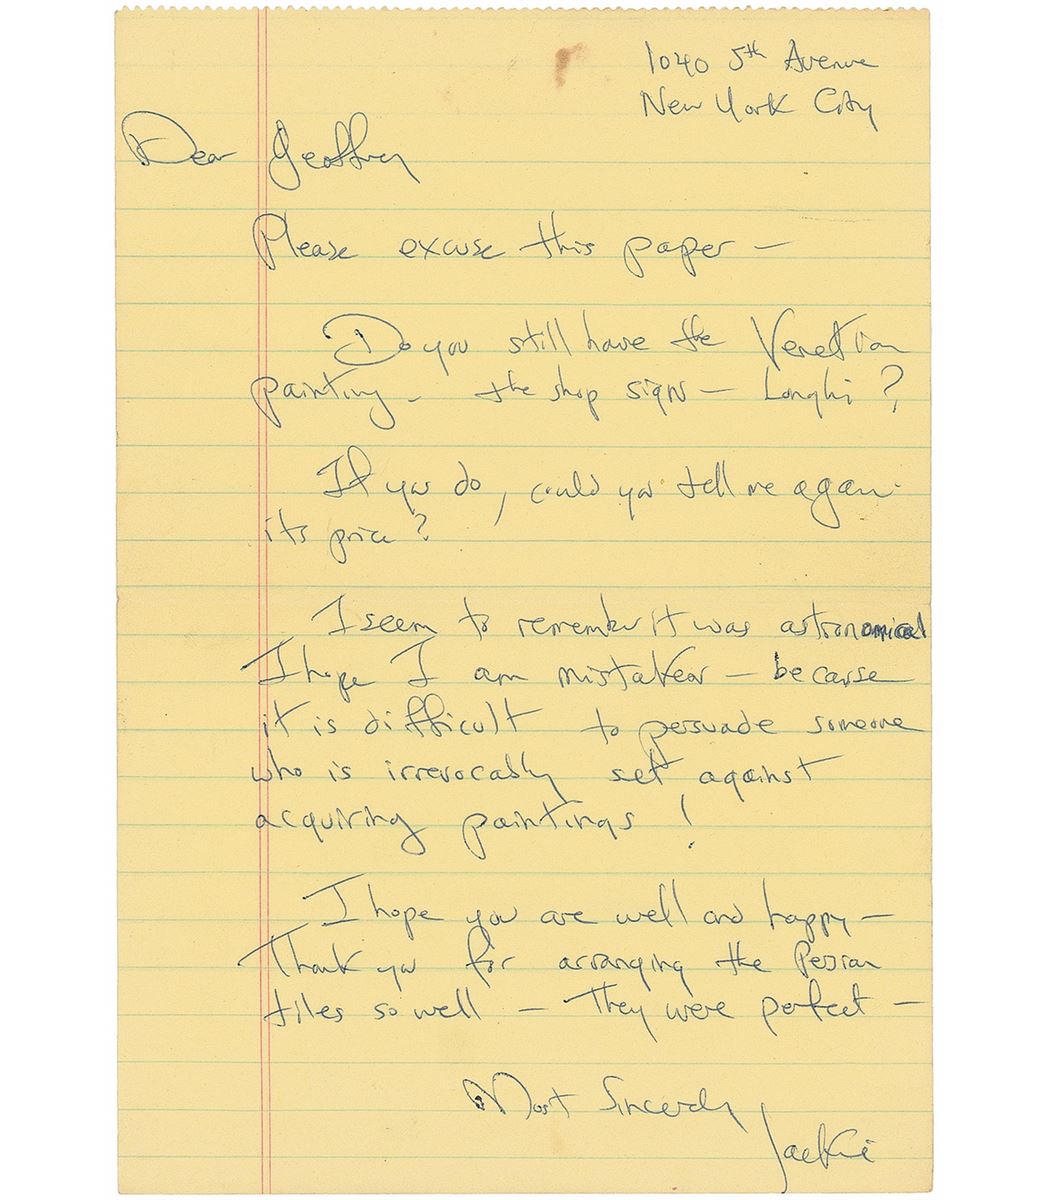 1040 5th Avenue
New York City
Dear Geoffrey
Please excuse this paper —
Do you still have the Venetian
painting - the shop sign — Longhi?
If you do, could you tell me again
its price?
I seem to remember it was astronomical
I hope I am mistaken — because
it is difficult to persuade someone
who is irrevocably set against
acquiring paintings!
I hope you are well and happy —
Thank you for arranging the Persian
tiles so well — They were perfect —
Most Sincerely
Jackie